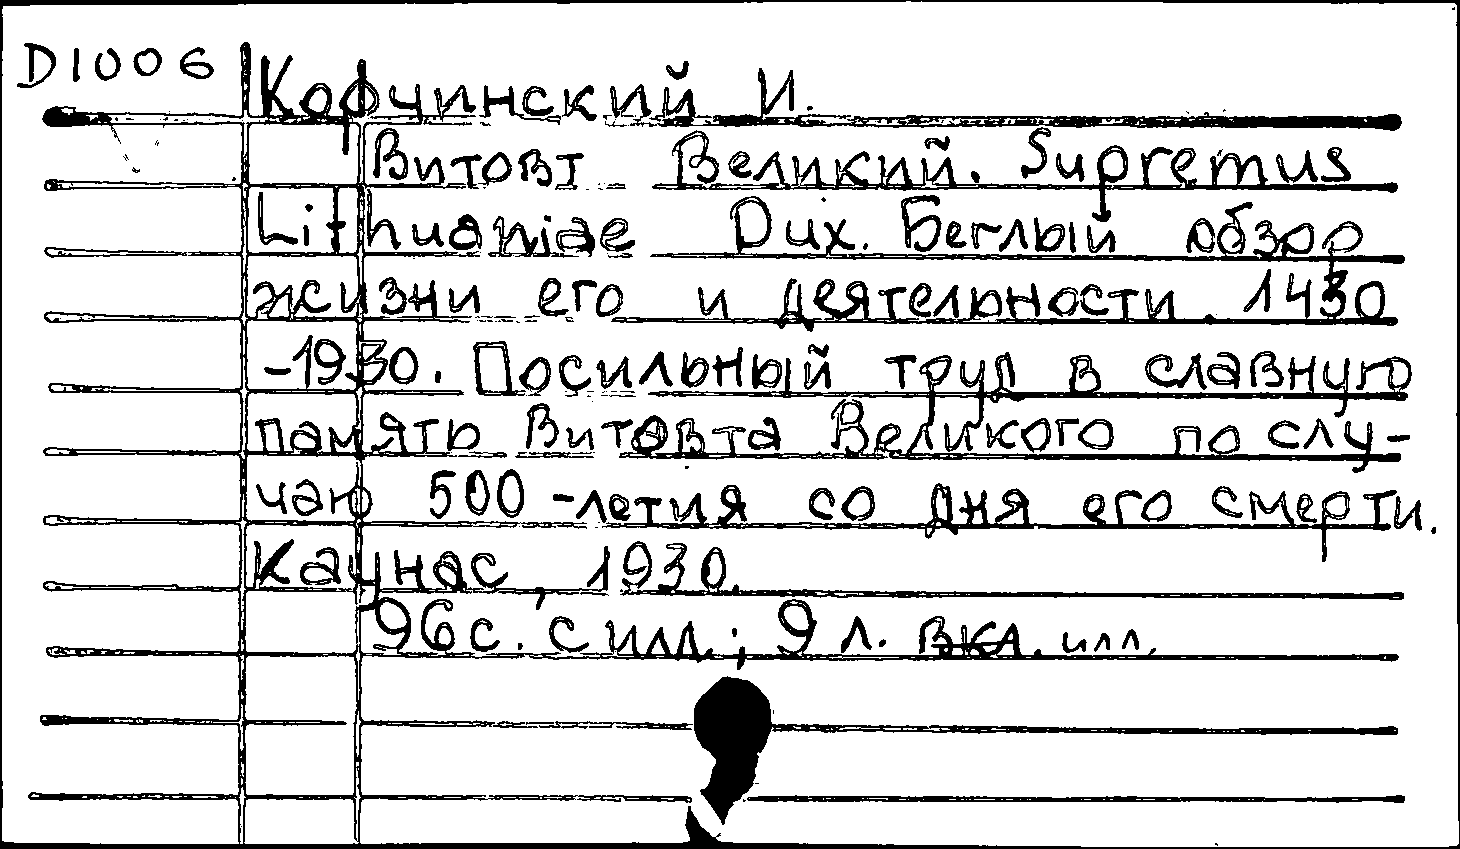 D1006
Кофчинский И.
Витовт Великий. Supremus
Lithuaniae Dux. Беглый обзор
жизни его и деятельности. 1430
-1930. Посильный труд в славную
память Витовта Великого по слу-
чаю 500-летия со дня его смерти.
Каунас, 1930.
96 с. с илл.; 9 л. вкл. илл.